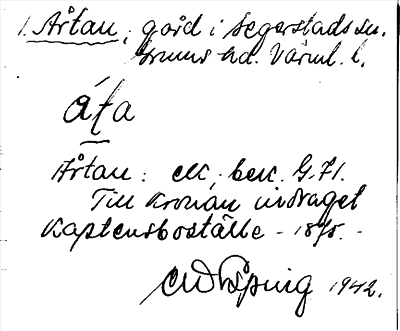 1. Årtan, gård i Segerstads sn.
Grums hd. Värml. l.
åta
Årtan: ek. berk. G.71.
Till Kronan indraget
Kaptensboställe - 1875. -
1942.